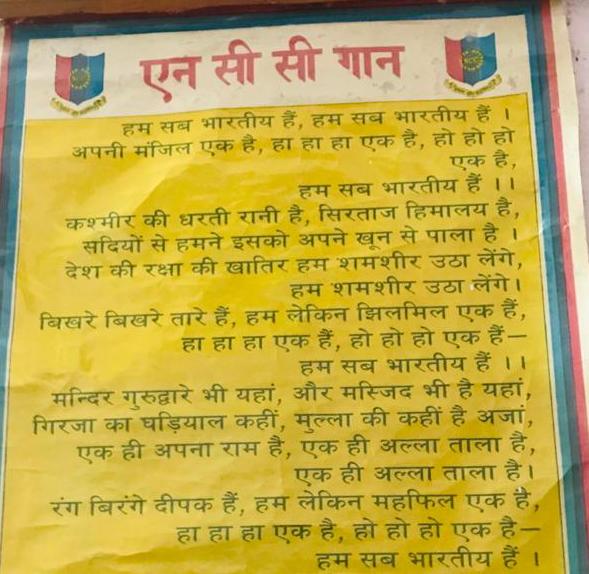 एन सी सी गान
हम सब भारतीय हैं, हम सब भारतीय हैं ।
अपनी मंजिल एक है, हा हा हा एक है, हो हो हो
एक है,
हम सब भारतीय हैं ।।
कश्मीर की धरती रानी है, सिरताज हिमालय है,
सदियों से हमने इसको अपने खून से पाला है ।
देश की रक्षा की खातिर हम शमशीर उठा लेंगे,
हम शमशीर उठा लेंगे।
बिखरे बिखरे तारे हैं, हम लेकिन झिलमिल एक हैं,
हा हा हा एक हैं, हो हो हो एक हैं—
हम सब भारतीय हैं ।।
मन्दिर गुरुद्वारे भी यहां, और मस्जिद भी है यहां,
गिरजा का घड़ियाल कहीं, मुल्ला की कहीं है अजां,
एक ही अपना राम है, एक ही अल्ला ताला है,
एक ही अल्ला ताला है।
रंग बिरंगे दीपक हैं, हम लेकिन महफिल एक है,
हा हा हा एक है, हो हो हो एक है—
हम सब भारतीय हैं ।